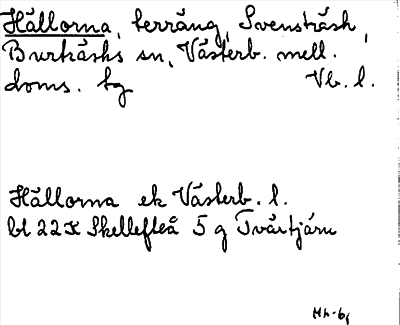 Hällorna, terräng, Svensträsk,
Burträsks sn, Västerb. mell.
doms. bg Vb. l.
Hällorna ek Västerb. l.
bl 22K Skellefteå 5 g Tvärtjärn